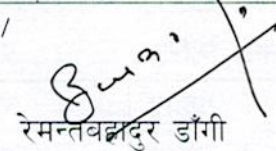 रेमन्तबहादुर डाँगी